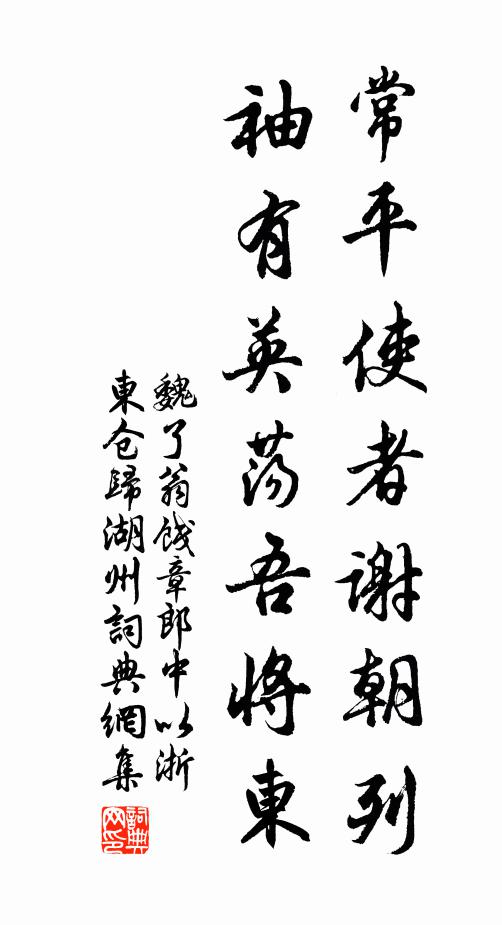 常平使者謝朝列
袖有英荡吾將東
魏了翁餞章郎中以浙
東仓歸湖州詞典網集
詞典
网